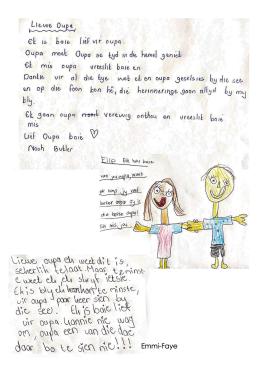 Liewe Oupa
Ek is baie lief vir oupa.
Oupa moet Oupa se tyd in die hemel geniet
Ek mis oupa vreeslik baie en
Dankie vir al die tye wat ek en oupa gesels by die see
en op die foon kon hê, die herinneringe gaan altyd by my
bly.
Ek gaan oupa verewig onthou en vreeslik baie
mis
Lief Oupa baie
Noah Butler
Ella: Ek hou baie
van jou oupa,
jy
Liewe oupa ek weet dit is,
sekerlik telaat. Maar ten minste
weet ek ek skryf ietsie
Ek is bly ek kon ten minste,
vir oupa paar keer sien by
die see. Ek is baie lief
vir oupa. Kannie nie wag
om, oupa een van die dae
daar bo te sien nie!!!
Emmi-Faye